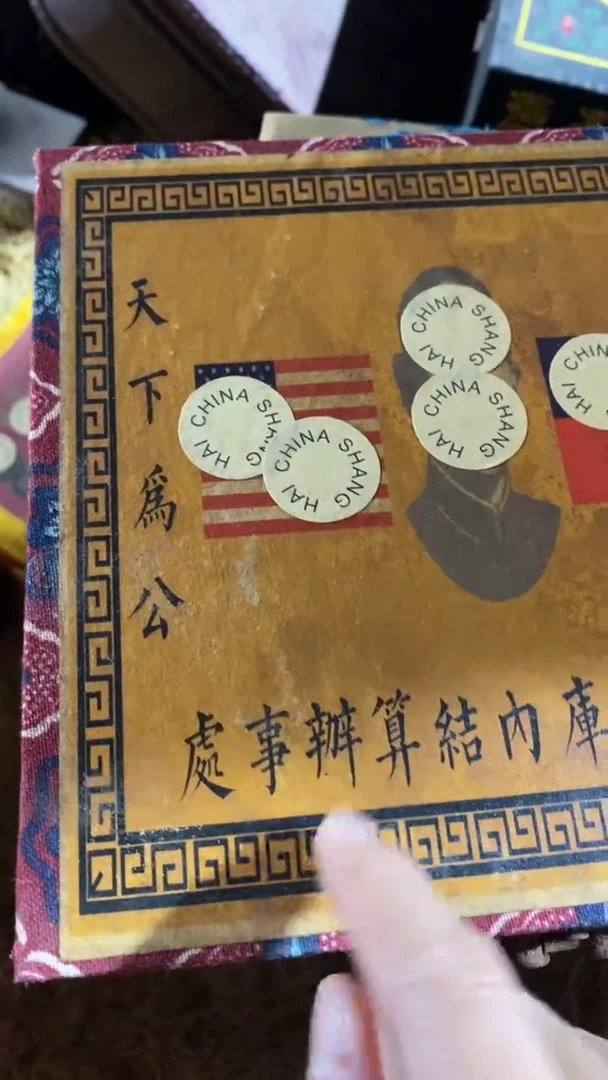 天下爲公
CHINA SHANG HAI
CHINA SHANG HAI
CHINA SHANG HAI
CHINA SHANG HAI
CHIN
HAI
庫內結算辦事處